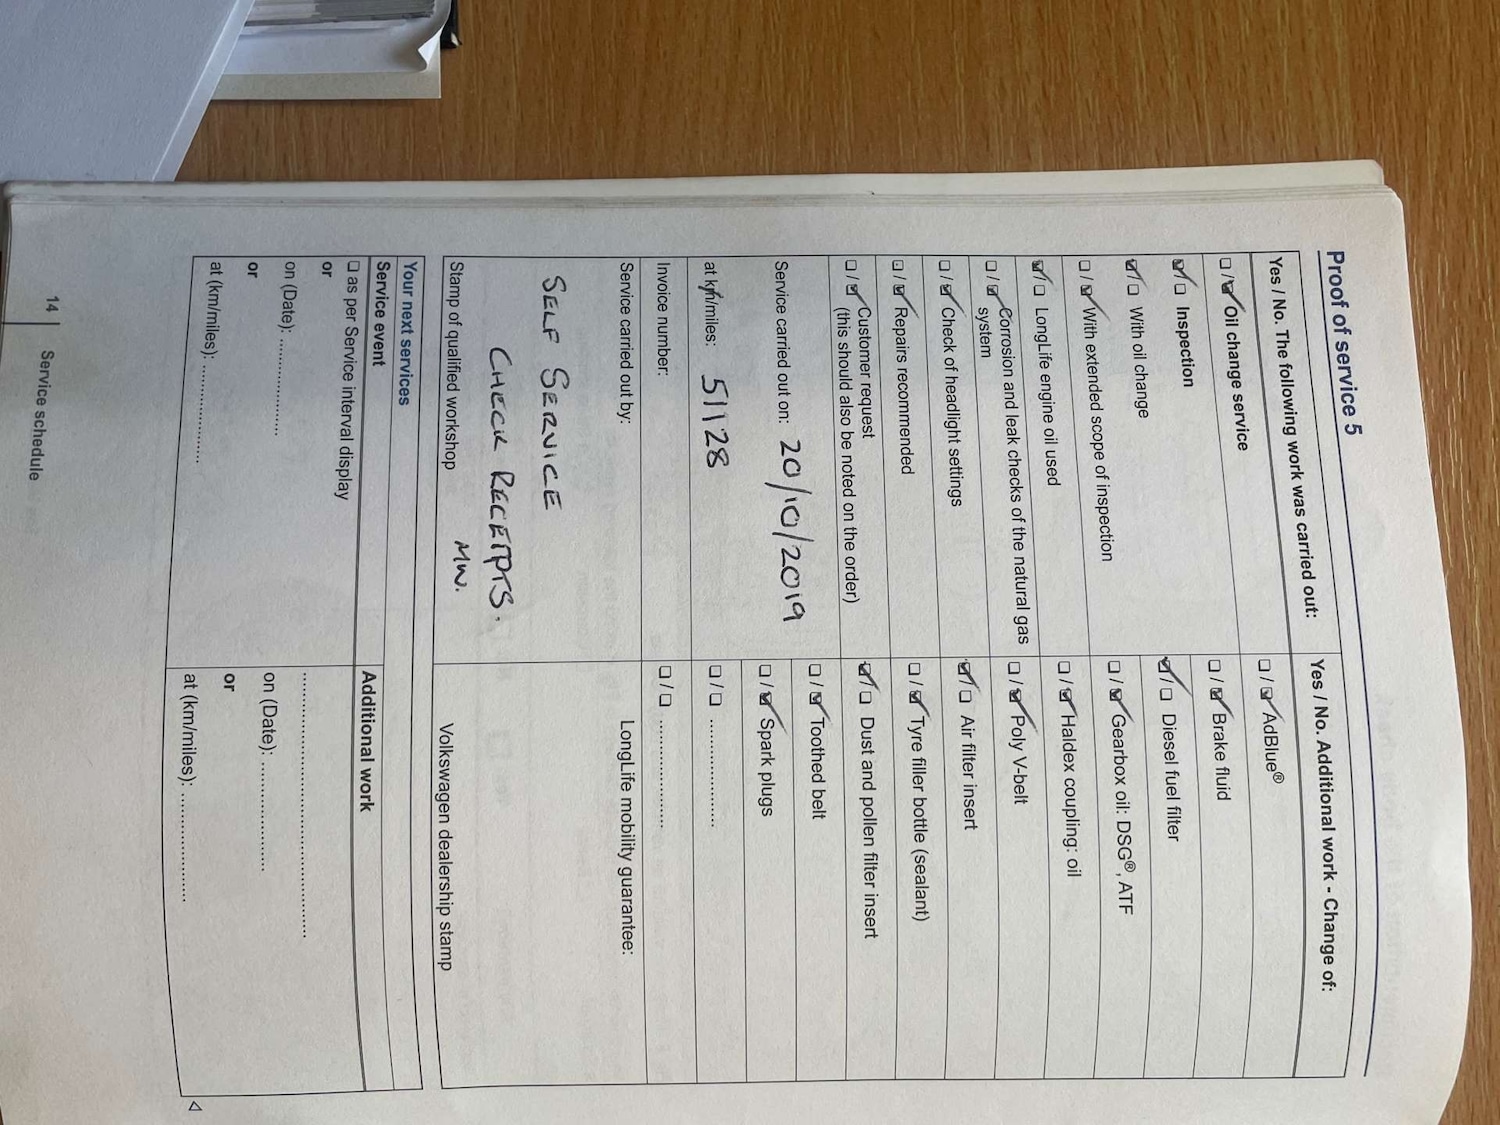 Proof of service 5
Yes / No. The following work was carried out:
☐/☑ Oil change service
☑/☐ Inspection
☑/☐ With oil change
☐/☑ With extended scope of inspection
☑/☐ LongLife engine oil used
☐/☑ Corrosion and leak checks of the natural gas
system
☐/☑ Check of headlight settings
☐/☑ Repairs recommended
☐/☑ Customer request
(this should also be noted on the order)
Service carried out on: 20/10/2019
at km/miles: 51128
Invoice number:
Service carried out by:
SELF SERVICE
CHECK RECEIPTS.
MW.
Stamp of qualified workshop
Yes / No. Additional work - Change of:
☐/☑ AdBlue®
☐/☑ Brake fluid
☑/☐ Diesel fuel filter
☐/☑ Gearbox oil: DSG®, ATF
☐/☑ Haldex coupling: oil
☐/☑ Poly V-belt
☑/☐ Air filter insert
☐/☑ Tyre filler bottle (sealant)
☑/☐ Dust and pollen filter insert
☐/☑ Toothed belt
☐/☑ Spark plugs
☐/☐ ....................
☐/☐ ....................
LongLife mobility guarantee:
Volkswagen dealership stamp
Your next services
Service event
☐ as per Service interval display
or
on (Date): ..................
or
at (km/miles): ..................
Additional work
................................................
on (Date): ....................
or
at (km/miles): ....................
14 | Service schedule